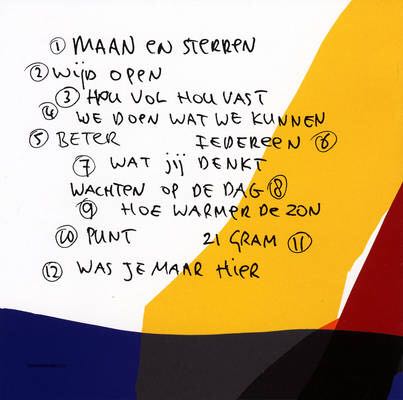 ① MAAN EN STERREN
② WIJD OPEN
③ HOU VOL HOU VAST
④ WE DOEN WAT WE KUNNEN
⑤ BETER IEDEREEN ⑥
⑦ WAT JIJ DENKT
WACHTEN OP DE DAG ⑧
⑨ HOE WARMER DE ZON
⑩ PUNT 21 GRAM ⑪
⑫ WAS JE MAAR HIER